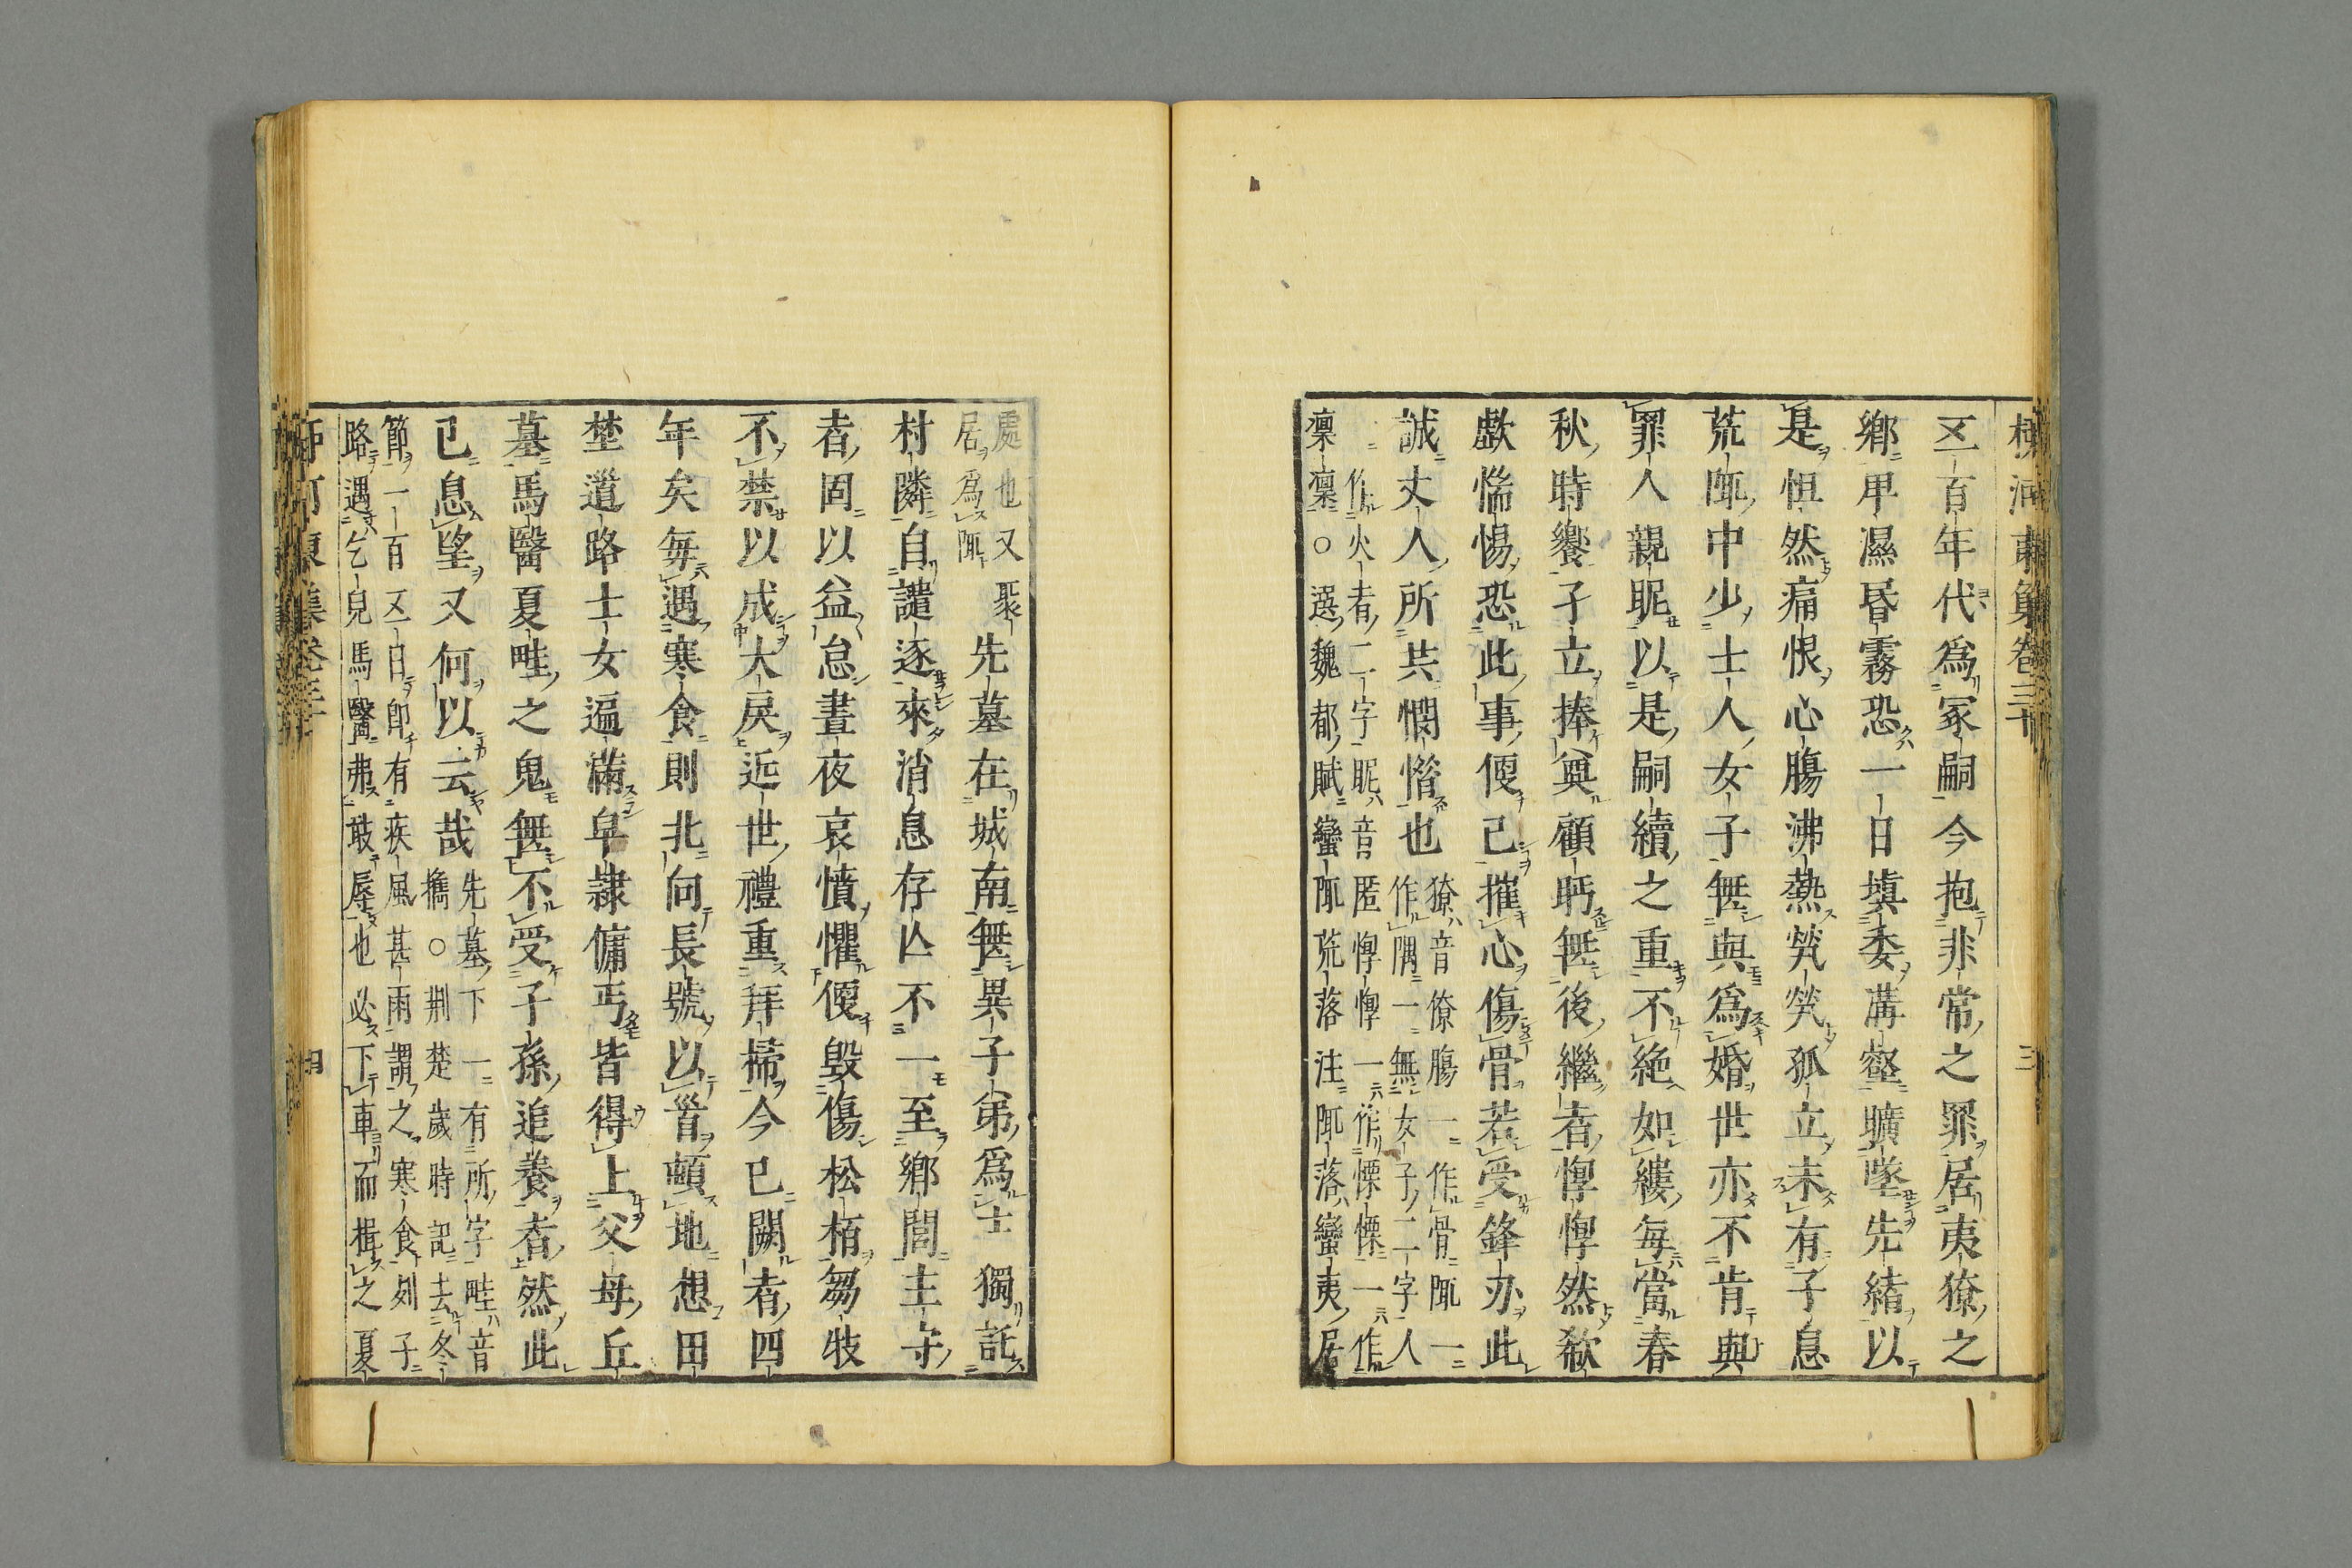 柳河東集卷三十 三
五百年代為冢嗣今抱非常之罪居夷獠之
鄉卑濕昏霧恐一日填委溝壑曠墜先緒以
是怛然痛恨心腸沸熱煢煢孤立未有子息
荒陬中少士人女子無與為婚世亦不肯與
罪人親昵以是嗣續之重不絕如縷每當春
秋時饗孑立捧奠顧眄無後繼者惸惸然欷
歔惴惕恐此事便已摧心傷骨若受鋒刃此
誠丈人所共憫惜也
獠音僚腸一作骨陬一
作隅一無女子二字人
作火者二字昵音匿惸惸一作慄慄一作
凛凛○選魏都賦蠻陬荒落注陬落蠻夷居
處也又聚
居為陬
先墓在城南無異子弟為主獨託
村隣自譴逐來消息存亡不一至鄉閭主守
者固以益怠晝夜哀憤懼便毀傷松栢芻牧
不禁以成大戾近世禮重拜掃今已闕者四
年矣每遇寒食則北向長號以首頓地想田
埜道路士女遍滿皁隸傭丐皆得上父母丘
墓馬醫夏畦之鬼無不受子孫追養者然此
已息望又何以云哉
先墓下一有所字畦音
攜○荊楚歲時記去冬
節一百五日即有疾風甚雨謂之寒食列子
路遇乞兒馬醫弗敢辱也必下車而揖之夏
柳河東集卷三十 四